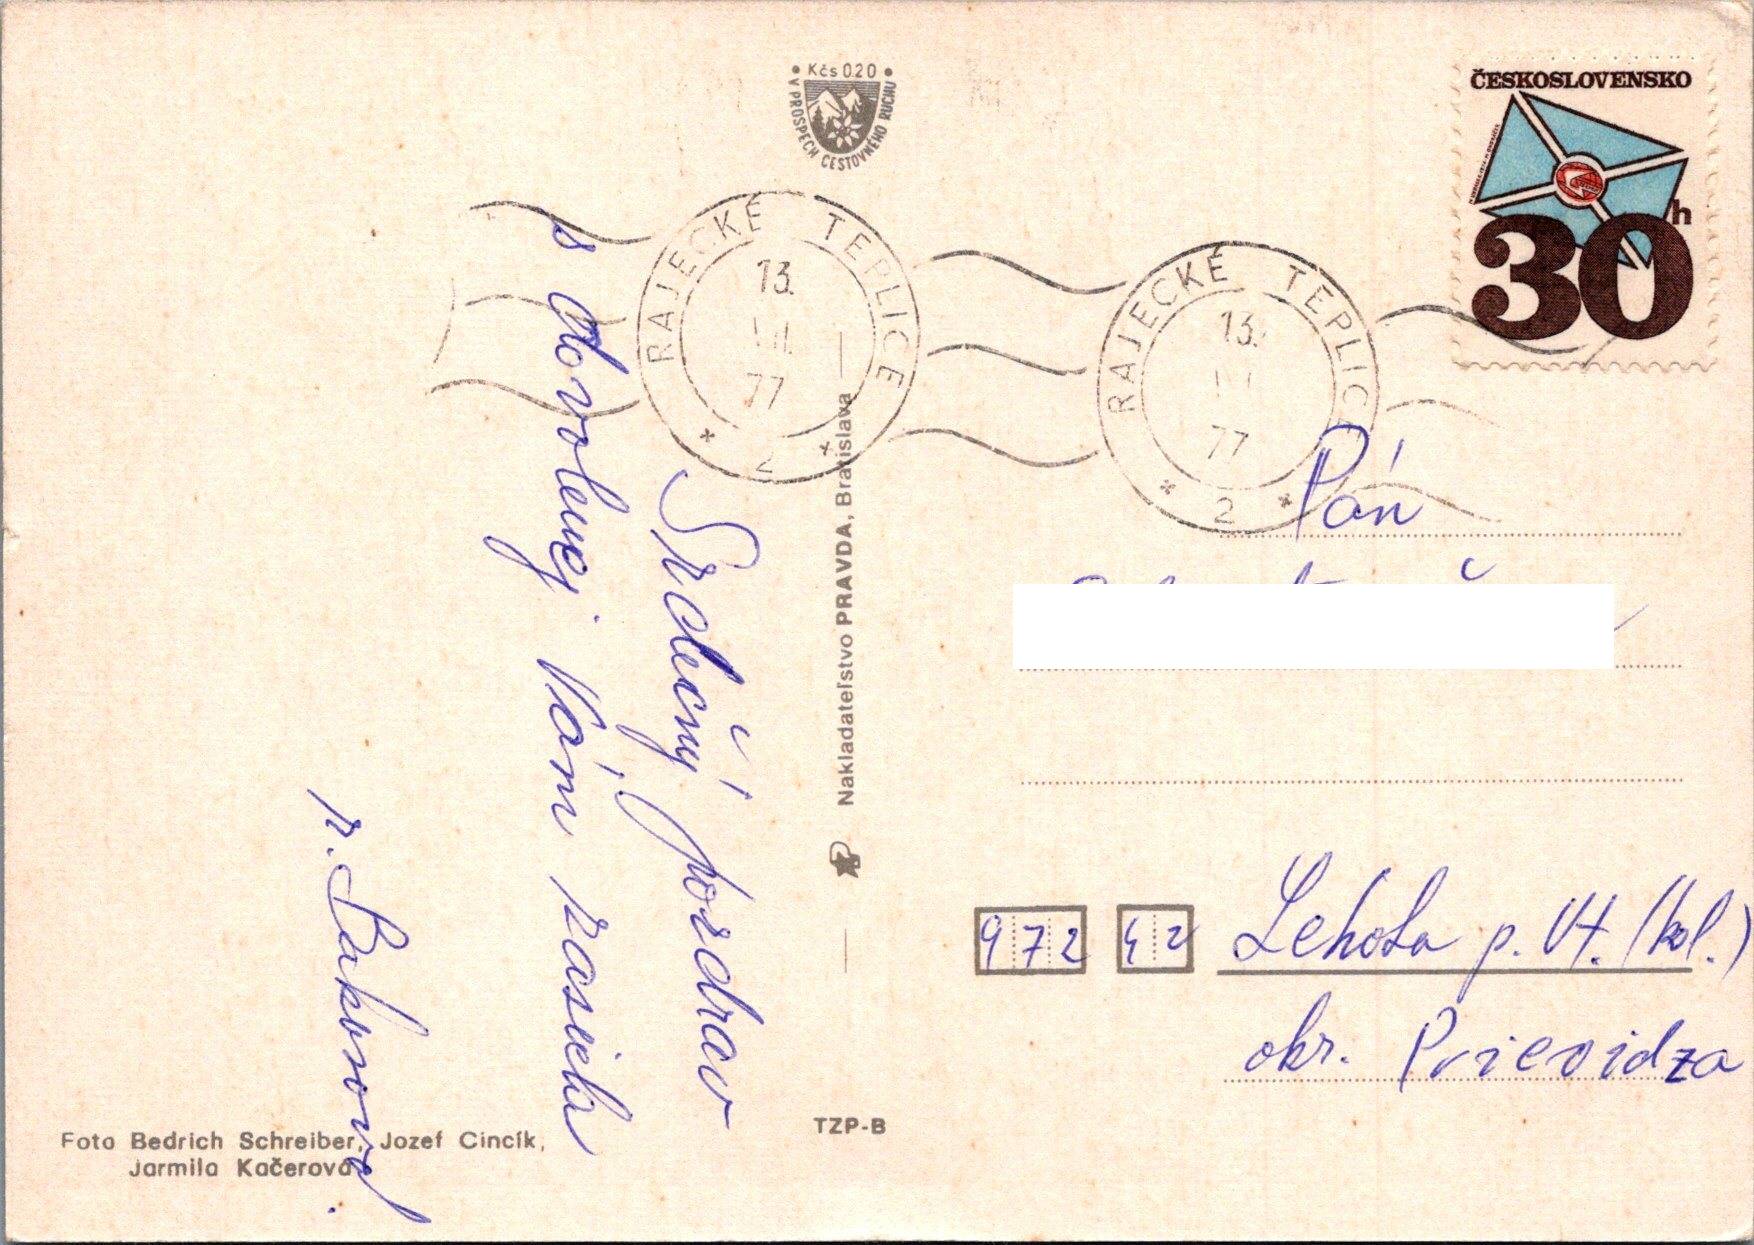 Kčs 0.20
V PROSPECH CESTOVNÉHO RUCHU
ČESKOSLOVENSKO
30 h
RAJECKÉ TEPLICE
13.
77
2
RAJECKÉ TEPLICE
13.
77
2
Srdečný pozdrav
s dovolenej Vám zasiela
r. Bakosová.
Nakladateľstvo PRAVDA, Bratislava
TZP-B
Foto Bedrich Schreiber, Jozef Cincík,
Jarmila Kačerová
Pán
972 42 Lehota p. Vt. (kol.)
okr. Prievidza